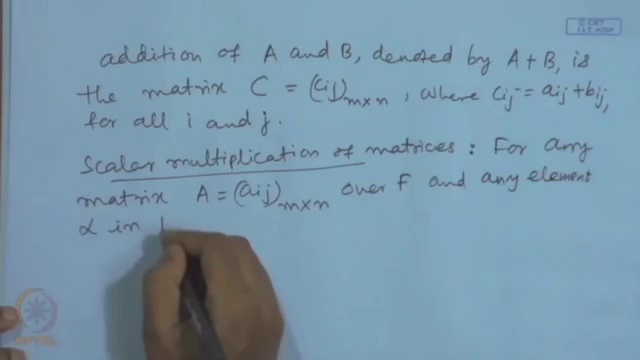 © CET
I.I.T. KGP
addition of A and B, denoted by A + B, is
the matrix C = (cij)m×n, where cij = aij + bij,
for all i and j.
Scalar multiplication of matrices : For any
matrix A = (aij)m×n over F and any element
α in
NPTEL